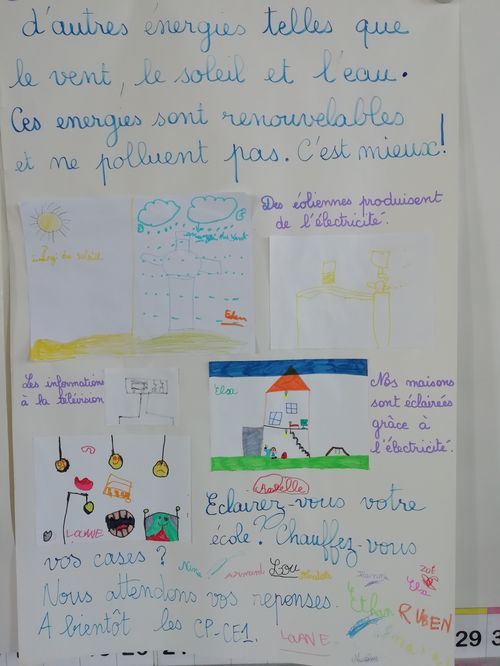 d'autres énergies telles que
le vent, le soleil et l'eau.
Ces energies sont renouvelables
et ne polluent pas. C'est mieux!
Des éoliennes produisent
de l'électricité.
Eden
Les informations
à la télévision
Elsa
Nos maisons
sont éclairées
grâce à
l'électricité.
LOANE
Eclairez-vous votre
école? Chauffez-vous
vos cases?
Nous attendons vos réponses.
A bientôt les CP-CE1.
Nina
Lou
Zoé
Elsa
Ethan
RUBEN
LOANE
29 3